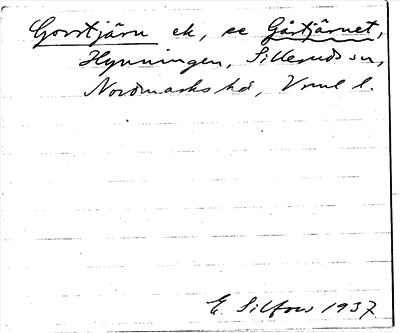 Gorrtjärn ek, se Gårtjärnet,
Hynningen, Silleruds sn,
Nordmarks hd, Vrml l.
E. Silfow 1937